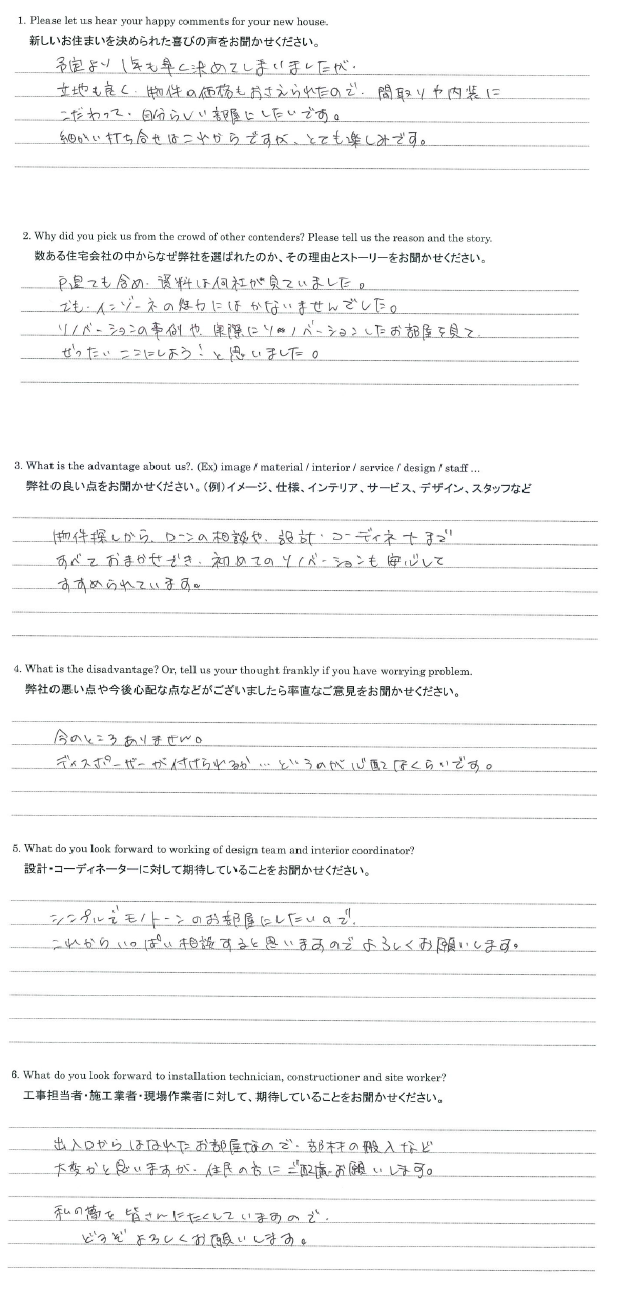 1. Please let us hear your happy comments for your new house.
新しいお住まいを決められた喜びの声をお聞かせください。
予定より1年も早く決めてしまいましたが、
立地も良く、物件の価格もおさえられたので、間取りや内装に
こだわって、自分らしい部屋にしたいです。
細かい打ち合せはこれからですが、とても楽しみです。
2. Why did you pick us from the crowd of other contenders? Please tell us the reason and the story.
数ある住宅会社の中からなぜ弊社を選ばれたのか、その理由とストーリーをお聞かせください。
戸建ても含め、資料は何社か見ていました。
でも、インゾーネの魅力にはかないませんでした。
リノベーションの事例や、実際にリノベーションしたお部屋を見て、
ぜったいここにしよう!と思いました。
3. What is the advantage about us?. (Ex) image / material / interior / service / design / staff ...
弊社の良い点をお聞かせください。(例)イメージ、仕様、インテリア、サービス、デザイン、スタッフなど
物件探しから、ローンの相談や、設計・コーディネートまで
すべておまかせでき、初めてのリノベーションも安心して
すすめられています。
4. What is the disadvantage? Or, tell us your thought frankly if you have worrying problem.
弊社の悪い点や今後心配な点などがございましたら率直なご意見をお聞かせください。
今のところありません。
ディスポーザーが付けられるか…というのが心配なくらいです。
5. What do you look forward to working of design team and interior coordinator?
設計・コーディネーターに対して期待していることをお聞かせください。
シンプルでモノトーンのお部屋にしたいので、
これからいっぱい相談すると思いますのでよろしくお願いします。
6. What do you look forward to installation technician, constructioner and site worker?
工事担当者・施工業者・現場作業者に対して、期待していることをお聞かせください。
出入口からはなれたお部屋なので、部材の搬入など
大変かと思いますが、住民の方にご配慮お願いします。
私の夢を皆さんにたくしていますので、
どうぞよろしくお願いします。